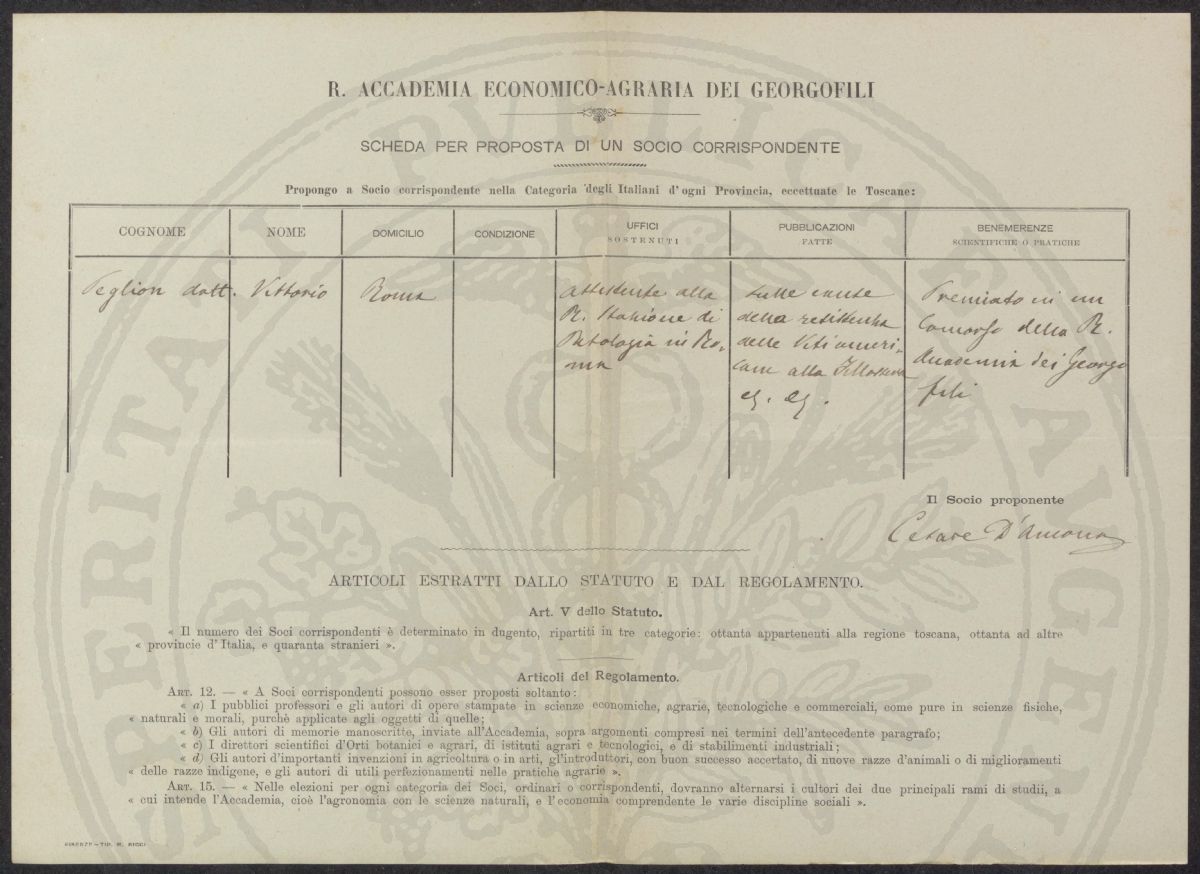 R. ACCADEMIA ECONOMICO-AGRARIA DEI GEORGOFILI
SCHEDA PER PROPOSTA DI UN SOCIO CORRISPONDENTE
Propongo a Socio corrispondente nella Categoria degli Italiani d'ogni Provincia, eccettuate le Toscane:
COGNOME
NOME
DOMICILIO
CONDIZIONE
UFFICI
SOSTENUTI
PUBBLICAZIONI
FATTE
BENEMERENZE
SCIENTIFICHE O PRATICHE
Peglion dott.
Vittorio
Roma
Assistente alla
R. Stazione di
Patologia in Ro-
ma
Sulle cause
della resistenza
delle Viti ameri-
cane alla Fillossera
Premiato in un
Concorso della R.
Accademia dei Georgo
fili
Il Socio proponente
Cesare D'Ancona
ARTICOLI ESTRATTI DALLO STATUTO E DAL REGOLAMENTO.
Art. V dello Statuto.
« Il numero dei Soci corrispondenti è determinato in dugento, ripartiti in tre categorie: ottanta appartenenti alla regione toscana, ottanta ad altre
« provincie d'Italia, e quaranta stranieri ».
Articoli del Regolamento.
ART. 12. — « A Soci corrispondenti possono esser proposti soltanto:
« a) I pubblici professori e gli autori di opere stampate in scienze economiche, agrarie, tecnologiche e commerciali, come pure in scienze fisiche,
« naturali e morali, purchè applicate agli oggetti di quelle;
« b) Gli autori di memorie manoscritte, inviate all'Accademia, sopra argomenti compresi nei termini dell'antecedente paragrafo;
« c) I direttori scientifici d'Orti botanici e agrari, di istituti agrari e tecnologici, e di stabilimenti industriali;
« d) Gli autori d'importanti invenzioni in agricoltura o in arti, gl'introduttori, con buon successo accertato, di nuove razze d'animali o di miglioramenti
« delle razze indigene, e gli autori di utili perfezionamenti nelle pratiche agrarie ».
ART. 15. — « Nelle elezioni per ogni categoria dei Soci, ordinari o corrispondenti, dovranno alternarsi i cultori dei due principali rami di studii, a
« cui intende l'Accademia, cioè l'agronomia con le scienze naturali, e l'economia comprendente le varie discipline sociali ».
FIRENZE – TIP. M. RICCI
PROSPERITATI PUBLICAE AUGENDAE